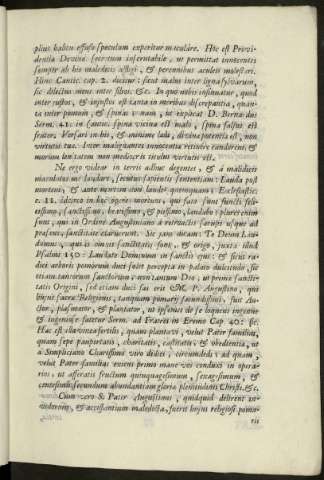 plius habitu effuso speculum experitur maculare. Hoc est Providentia
Divina secretum inscrutabile, ut permittat innocentis
semper ab his maledicis affligi, & perennibus aculeis molestari.
Hinc Cantic. cap. 2. dicitur: sicut malus inter ligna sylvarum,
sic dilectus meus inter filios. &c. In quo nobis insinuatur, quod
inter justos, & injustos est tanta in moribus discrepantia, quanta
inter pomum, & spinas: nam, ut explicat D. Bernardus
Serm. 48. in cantic. spina vicina est mali, spina falsus est
frater. Versari in his, & minime ladi, divina potentia est, non
virtutis tua. Inter malignantes innocentia retinere candorem, &
morum lenitatem non mediocris titulus virtutis est.
Ne ergo videar in terris adhuc degentes, & à maledicis
mordendos me laudare, sequar sapientis sententiam: Lauda post
mortem, & ante mortem non laudes quemquam: Ecclesiastic:
c. 11. dicere in hac
mortuos, qui
sunt functi felicissime,
sanctissimo, & piissimo, laudabo: plures enim
sunt, qui in Ordine Augustiniano à retroactis sæculis usque ad
præsens, sanctitate claruerunt. Sic jam dicam: Te Deum Laudamus,
quia is omnis sanctitatis fons, & origo, juxta illud
Psalmi 150: Laudate Dominum in sanctis ejus: & sicut radici
arboris pomorum duci solet percepta in palato dulcedo, sic
etiam tantorum sanctorum venerandum Deo, ut primo sanctitatis
Origini, sed etiam duci fas erit M. P. Augustino, qui
hujus sacræ Religionis, tanquam pomarij jucundissimi, fuit Auctor,
plasmator, & plantator, ut ipsemet de se loquens ingenue
& ingeniose fatetur Serm. ad Fratres in Eremo Cap 40: sic.
Hæc est illa vinea fertilis, quam plantavi, velut Pater familias,
quam sepe paupertatis, charitatis, castitatis, & obedientia, ut
à Simpliciano Charissimo viro didici, circundedi: ad quam,
velut Pater familias exiens primo mane vos conduxi in operarios,
ut afferatis fructum quinquagesimum, sexagesimum, &
centesimum secundum abundantiam gloria plenitudinis Christi. &c.
Cum vero S. Pater Augustinus, quidquid delirent invidentiæ,
& accessantium maledicta, fuerit hujus religiosi pomarii